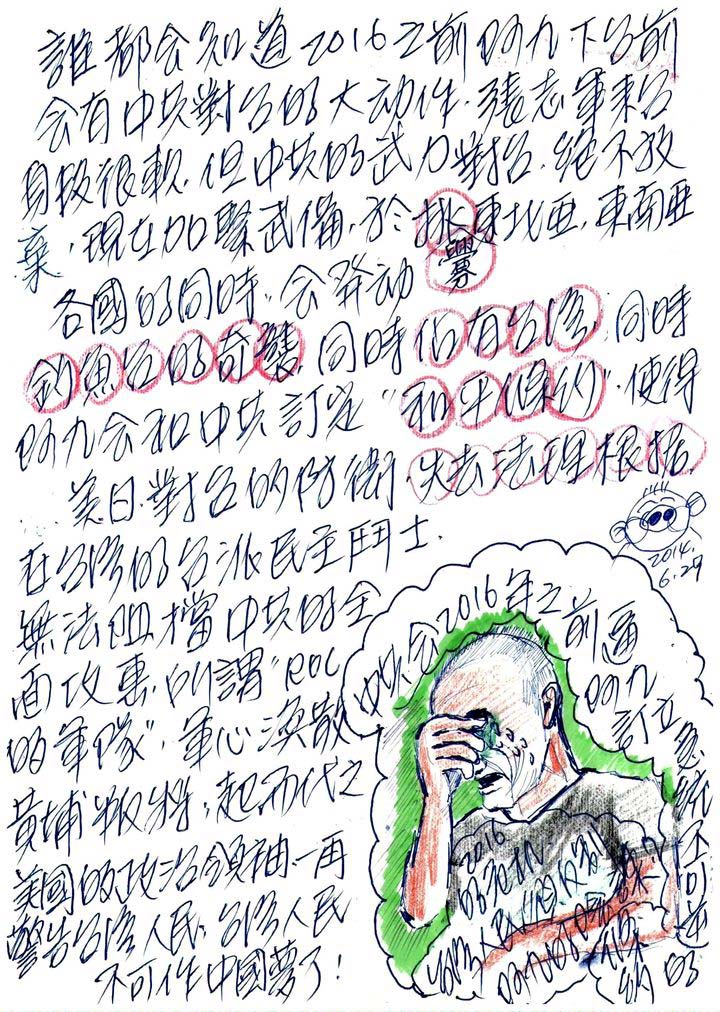 誰都会知道2016之前阿九下台前
会有中共對台的大动作.張志軍來台
身段很軟.但中共的武力對台.絕不放
棄,現在加緊武備,於挑東北亚.東南亜
釁
各國的同時.会發动
釣魚台的奇襲.同時佔有台湾.同時
阿九会和中共訂定"和平條約".使得
美日.對台的防衛.失去法理根据.
2014.
6.29
在台湾的台派民主鬥士.
無法阻擋中共的全
面攻惠.所謂"ROC
的軍隊".軍心渙散
黃埔叛将,起而代之
美國的政治領袖一再
警告台湾人民.台湾人民
不可作中國夢了!
中共会2016年之前逼
阿九
訂立
急統不可逆的
2016
的危机
台湾人民